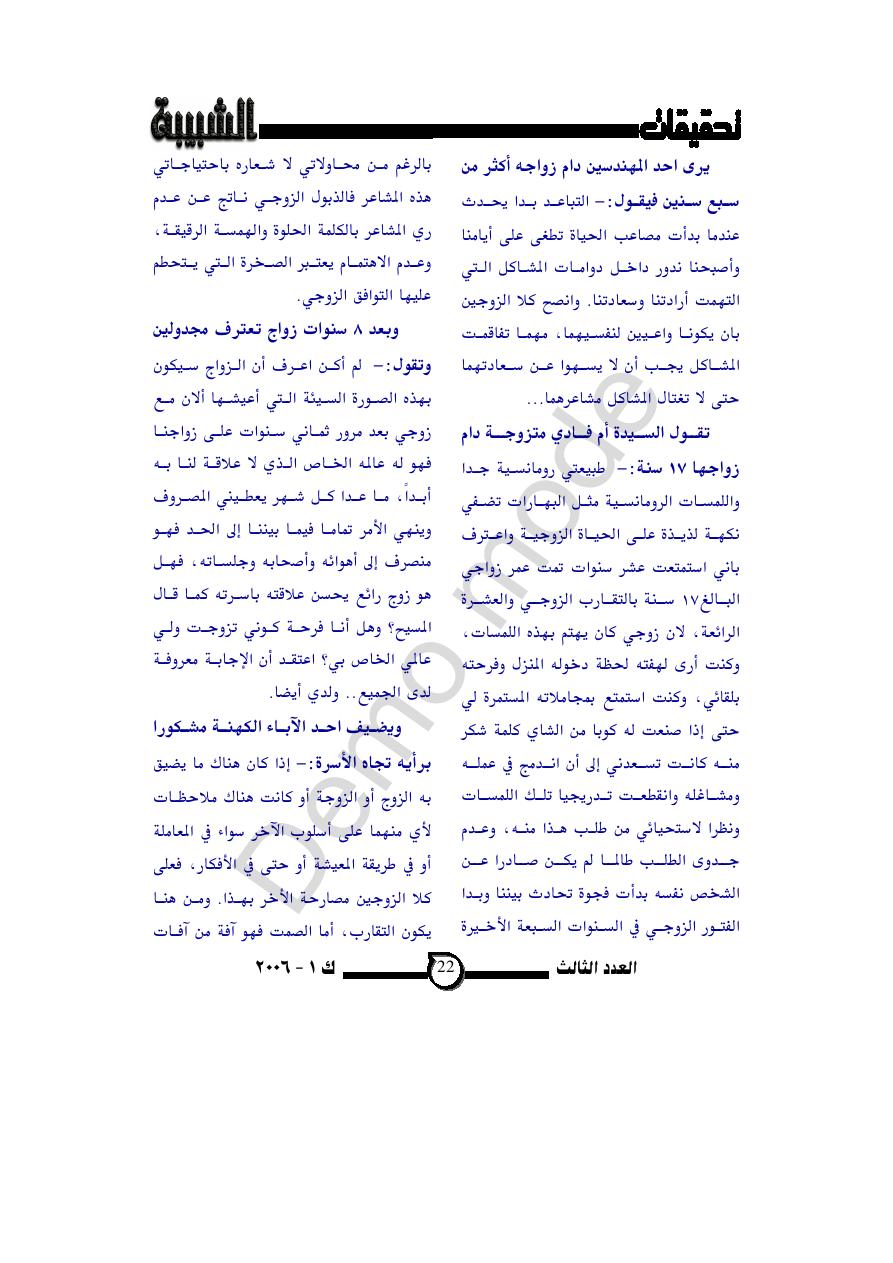 تحقيقات
الشبيبة
يرى احد المهندسين دام زواجه أكثر من
سبع سنين فيقول:- التباعد بدا يحدث
عندما بدأت مصاعب الحياة تطغى على أيامنا
وأصبحنا ندور داخل دوامات المشاكل التي
التهمت أرادتنا وسعادتنا. وانصح كلا الزوجين
بان يكونا واعيين لنفسيهما، مهما تفاقمت
المشاكل يجب أن لا يسهوا عن سعادتهما
حتى لا تغتال المشاكل مشاعرهما...
تقول السيدة أم فادي متزوجة دام
زواجها ١٧ سنة:- طبيعتي رومانسية جدا
واللمسات الرومانسية مثل البهارات تضفي
نكهة لذيذة على الحياة الزوجية واعترف
باني استمتعت عشر سنوات تمت عمر زواجي
البالغ١٧ سنة بالتقارب الزوجي والعشرة
الرائعة، لان زوجي كان يهتم بهذه اللمسات،
وكنت أرى لهفته لحظة دخوله المنزل وفرحته
بلقائي، وكنت استمتع بمجاملاته المستمرة لي
حتى إذا صنعت له كوبا من الشاي كلمة شكر
منه كانت تسعدني إلى أن اندمج في عمله
ومشاغله وانقطعت تدريجيا تلك اللمسات
ونظرا لاستحيائي من طلب هذا منه، وعدم
جدوى الطلب طالما لم يكن صادرا عن
الشخص نفسه بدأت فجوة تحادث بيننا وبدا
الفتور الزوجي في السنوات السبعة الأخيرة
بالرغم من محاولاتي لا شعاره باحتياجاتي
هذه المشاعر فالذبول الزوجي ناتج عن عدم
ري المشاعر بالكلمة الحلوة والهمسة الرقيقة،
وعدم الاهتمام يعتبر الصخرة التي يتحطم
عليها التوافق الزوجي.
وبعد ٨ سنوات زواج تعترف مجدولين
وتقول:- لم أكن اعرف أن الزواج سيكون
بهذه الصورة السيئة التي أعيشها ألان مع
زوجي بعد مرور ثماني سنوات على زواجنا
فهو له عالمه الخاص الذي لا علاقة لنا به
أبداً، ما عدا كل شهر يعطيني المصروف
وينهي الأمر تماما فيما بيننا إلى الحد فهو
منصرف إلى أهوائه وأصحابه وجلساته، فهل
هو زوج رائع يحسن علاقته باسرته كما قال
المسيح؟ وهل أنا فرحة كوني تزوجت ولي
عالمي الخاص بي؟ اعتقد أن الإجابة معروفة
لدى الجميع.. ولدي أيضا.
ويضيف احد الآباء الكهنة مشكورا
برأيه تجاه الأسرة:- إذا كان هناك ما يضيق
به الزوج أو الزوجة أو كانت هناك ملاحظات
لأي منهما على أسلوب الآخر سواء في المعاملة
أو في طريقة المعيشة أو حتى في الأفكار، فعلى
كلا الزوجين مصارحة الأخر بهذا. ومن هنا
يكون التقارب، أما الصمت فهو آفة من آفات
العدد الثالث
22
ك ١ - ٢٠٠٦
Demo mode